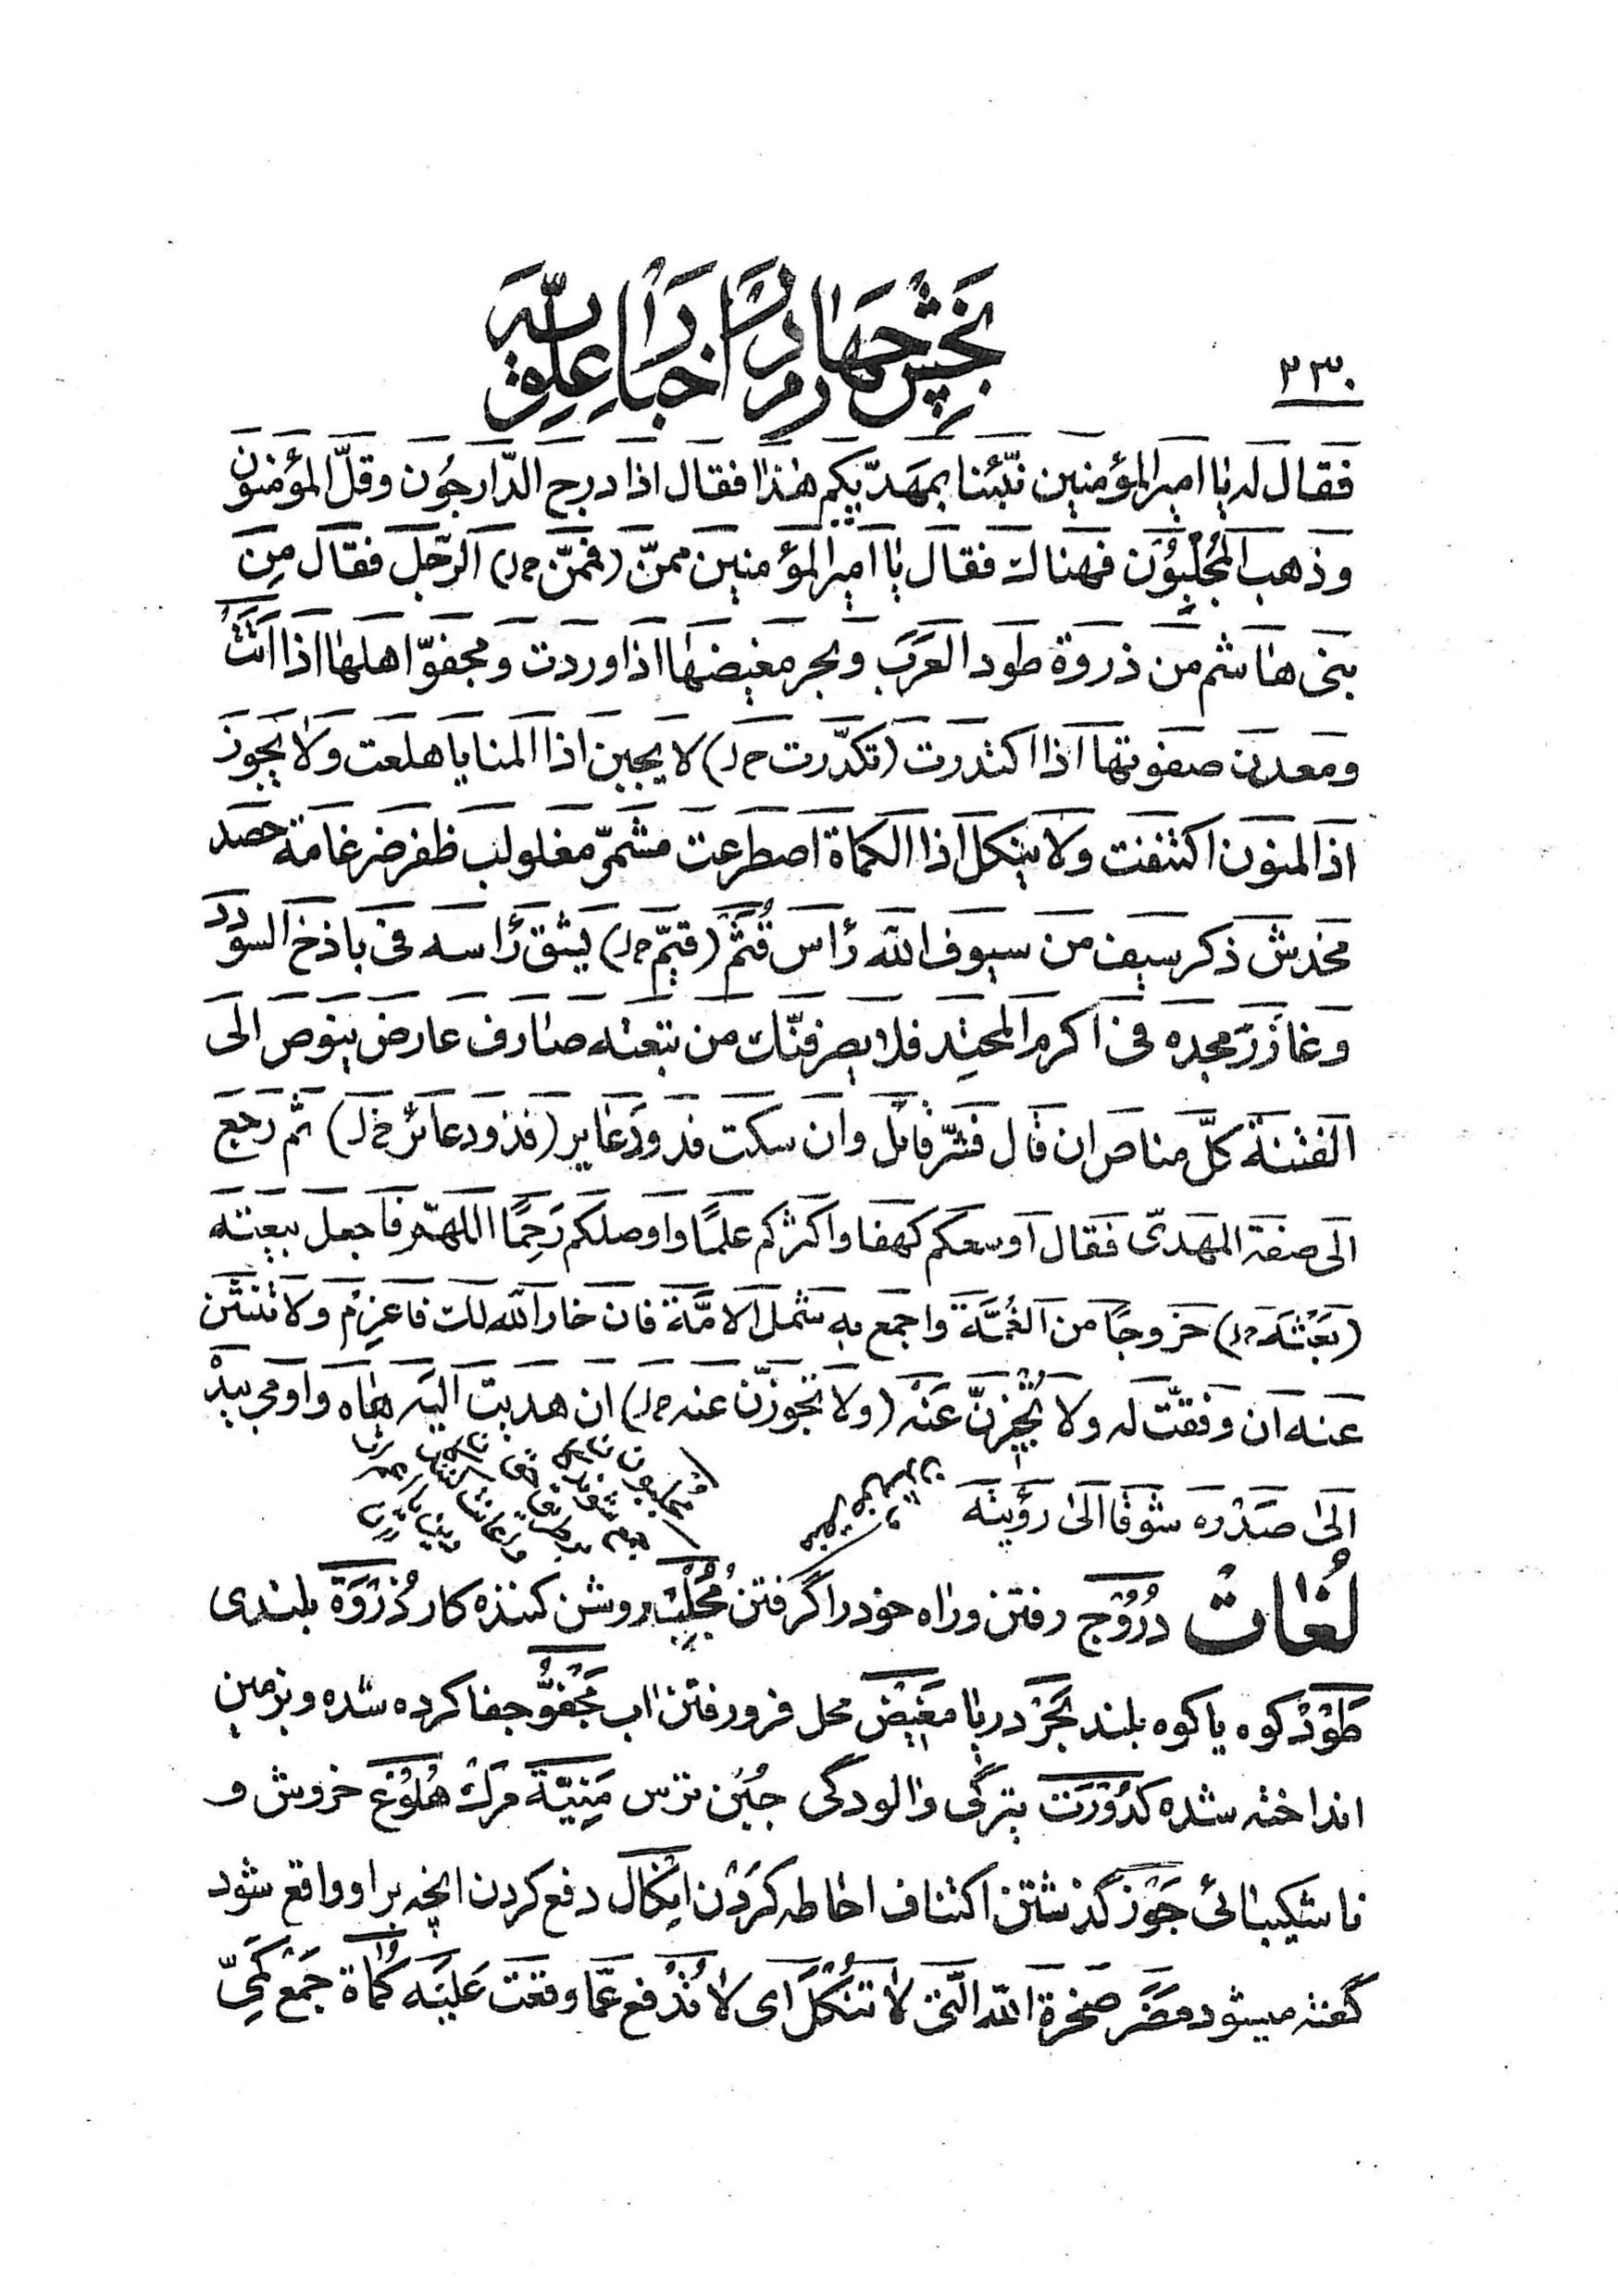 ۲۳۰
بخش چهارم در اخبار علویه
فقال له يا امير المؤمنين نبّئنا بمهديّكم هذا فقال اذا درج الدّارجُون وقلّ المؤمنون
وذهب المُجْلِبُون فهناك فقال يا امير المؤمنين ممّن (فممّن خ‌ل) الرّجل فقال مِن
بنى هاشم من ذروة طود العرب وبحر مغيضها اذا وردت ومجفوّ اهلها اذا اتت
ومعدن صفوتها اذا اكتدرت (تكدّرت خ‌ل) لا يجبن اذا المنايا هلعت ولا يجوز
اذا المنون اكتنفت ولا ينكل اذا الكماة اصطرعت مشمّر مغلولب ظفر ضرغامة حصد
مخدش ذكر سيف من سيوف الله رأس قُثَم (قيّم خ‌ل) يشق رأسه فى باذخ السودد
وغارز مجده فى اكرم المحتِد فلا يصرفنّك من تبعته صارف عارض ينوص الى
الفتنة كلّ مناص ان قال فشرّ قائل وان سكت فذو دعاير (فذو دعائر خ‌ل) ثم رجع
الى صفة المهدىّ فقال اوسعكم كهفا واكثركم علمًا واوصلكم رَحِمًا اللهمّ فاجعل بيعته
(بَعْثَه خ‌ل) خروجًا من الغُمَّة واجمع به شمل الامَّة فان خار الله لك فاعزِم ولا تنثن
عنه ان وفقتّ له ولا تُجيزنّ عَنْه (ولا تجوزنّ عنه خ‌ل) ان هديت اليه هاه واومى بيدْ
الى صَدْره شوقا الى رؤيته
لُغات دُرُوْج رفتن وراه خود را گرفتن مُجْلِبْ روشن كننده كار ذُرْوَة بلندى
طَوْد كوه يا كوه بلند بَحْر دريا مَغيْض محل فرو رفتن اب مَجْفُوّ جفا كرده شده وبزمين
انداخته شده كدُوْرَت تيرگى والودگى جُبْن ترس مَنِيَّة مرك هُلُوْع خروش و
ناشكيبائى جَوْز گذشتن اكتناف احاطه كردن اِنْكال دفع كردن انچه بر او واقع شود
گفته ميشود مُضَر صخرة الله التى لا تُنْكَل اى لا تُدْفع عمّا وقعَت عَليَه كُماة جَمْع كَمِىّ